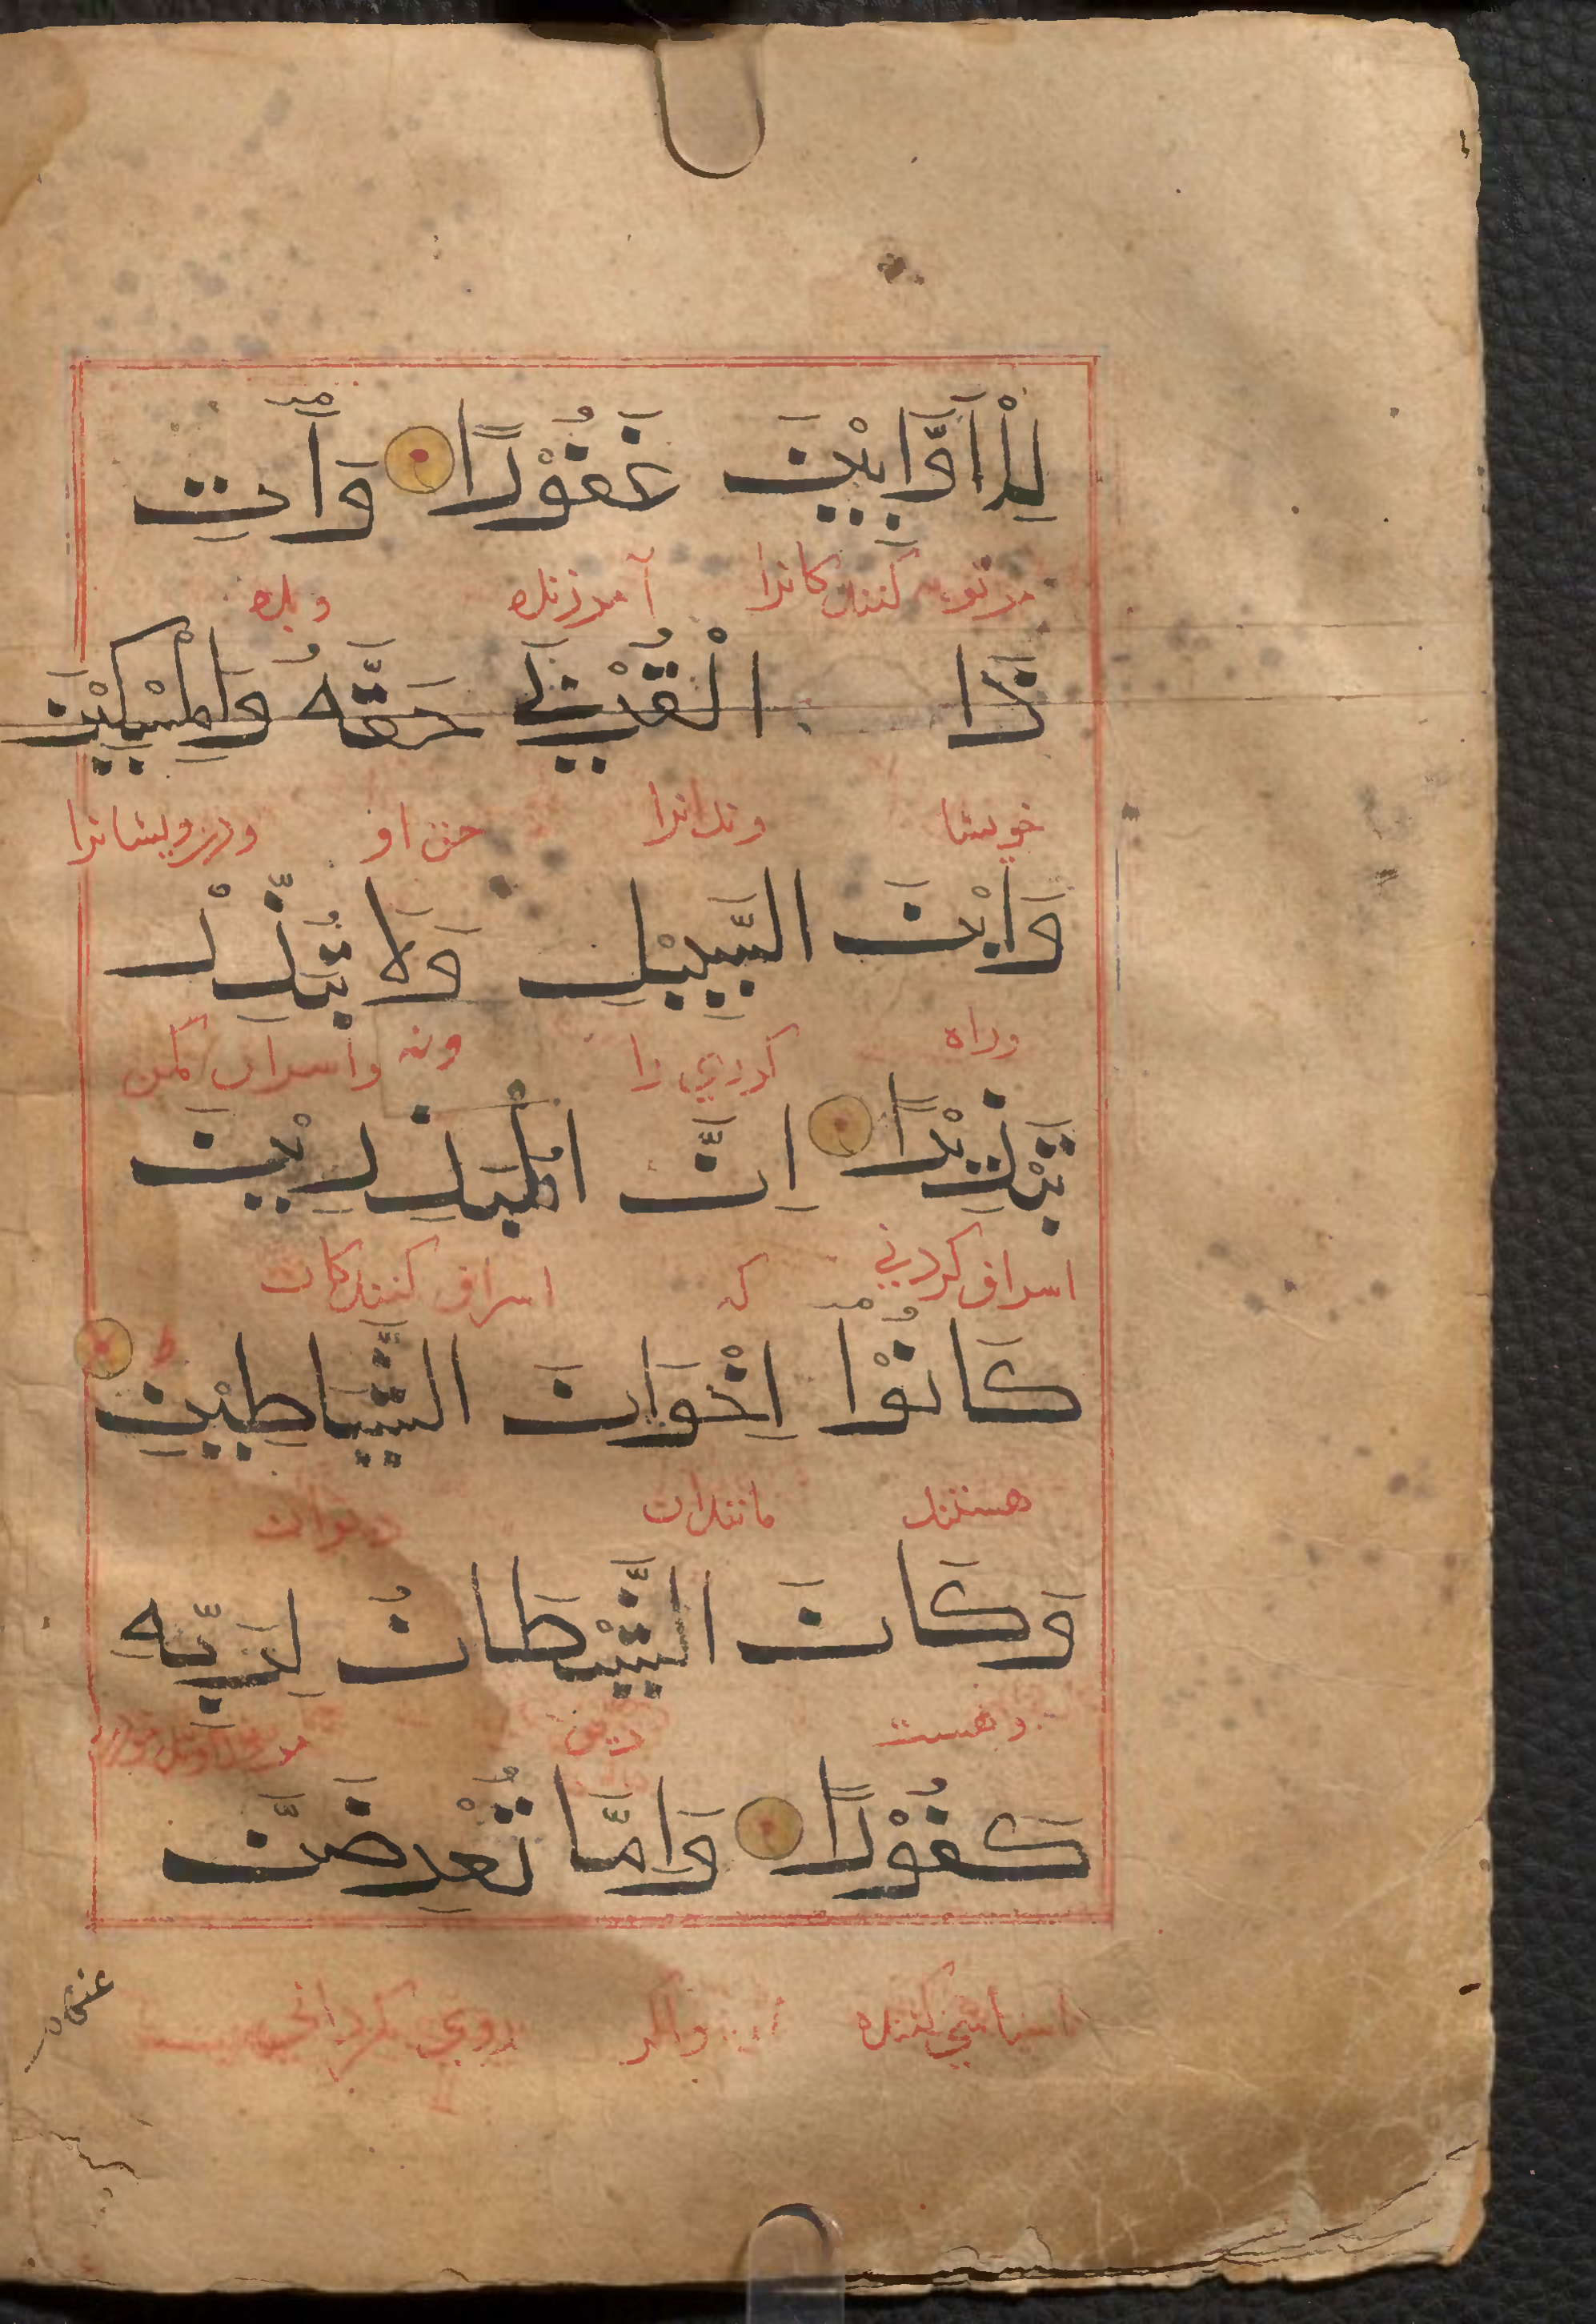 لِلْاَوَّابِيْنَ غَفُوْرًا وَاٰتِ
مر توبه كنندكانرا آمرزنده وبده
ذَا الْقُرْبٰي حَقَّهُ وَالْمِسْكِيْنَ
خويشا وندانرا حق او ودرويشانرا
وَابْنَ السَّبِيْلِ وَلَا تُبَذِّرْ
وراه كذري را ونه واسراف مكن
تَبْذِيْرًا اِنَّ الْمُبَذِّرِيْنَ
اسراف كردني كه اسراف كنندكان
كَانُوْا اِخْوَانَ الشَّيَاطِيْنِ ط
هستند مانندان ديوان
وَكَانَ الشَّيْطَانُ لِرَبِّهِ
وهست ديو
كَفُوْرًا وَاِمَّا تُعْرِضَنَّ
ناسپاسي كننده واكر روي كرداني
عنهم